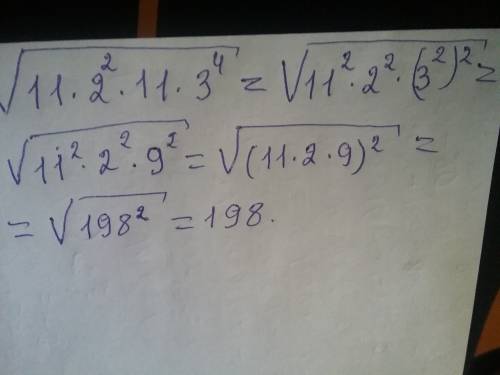 √(11·2²·11·3⁴) = √(11²·2²·(3²)²) =
√(11²·2²·9²) = √((11·2·9)²) =
= √(198²) = 198.